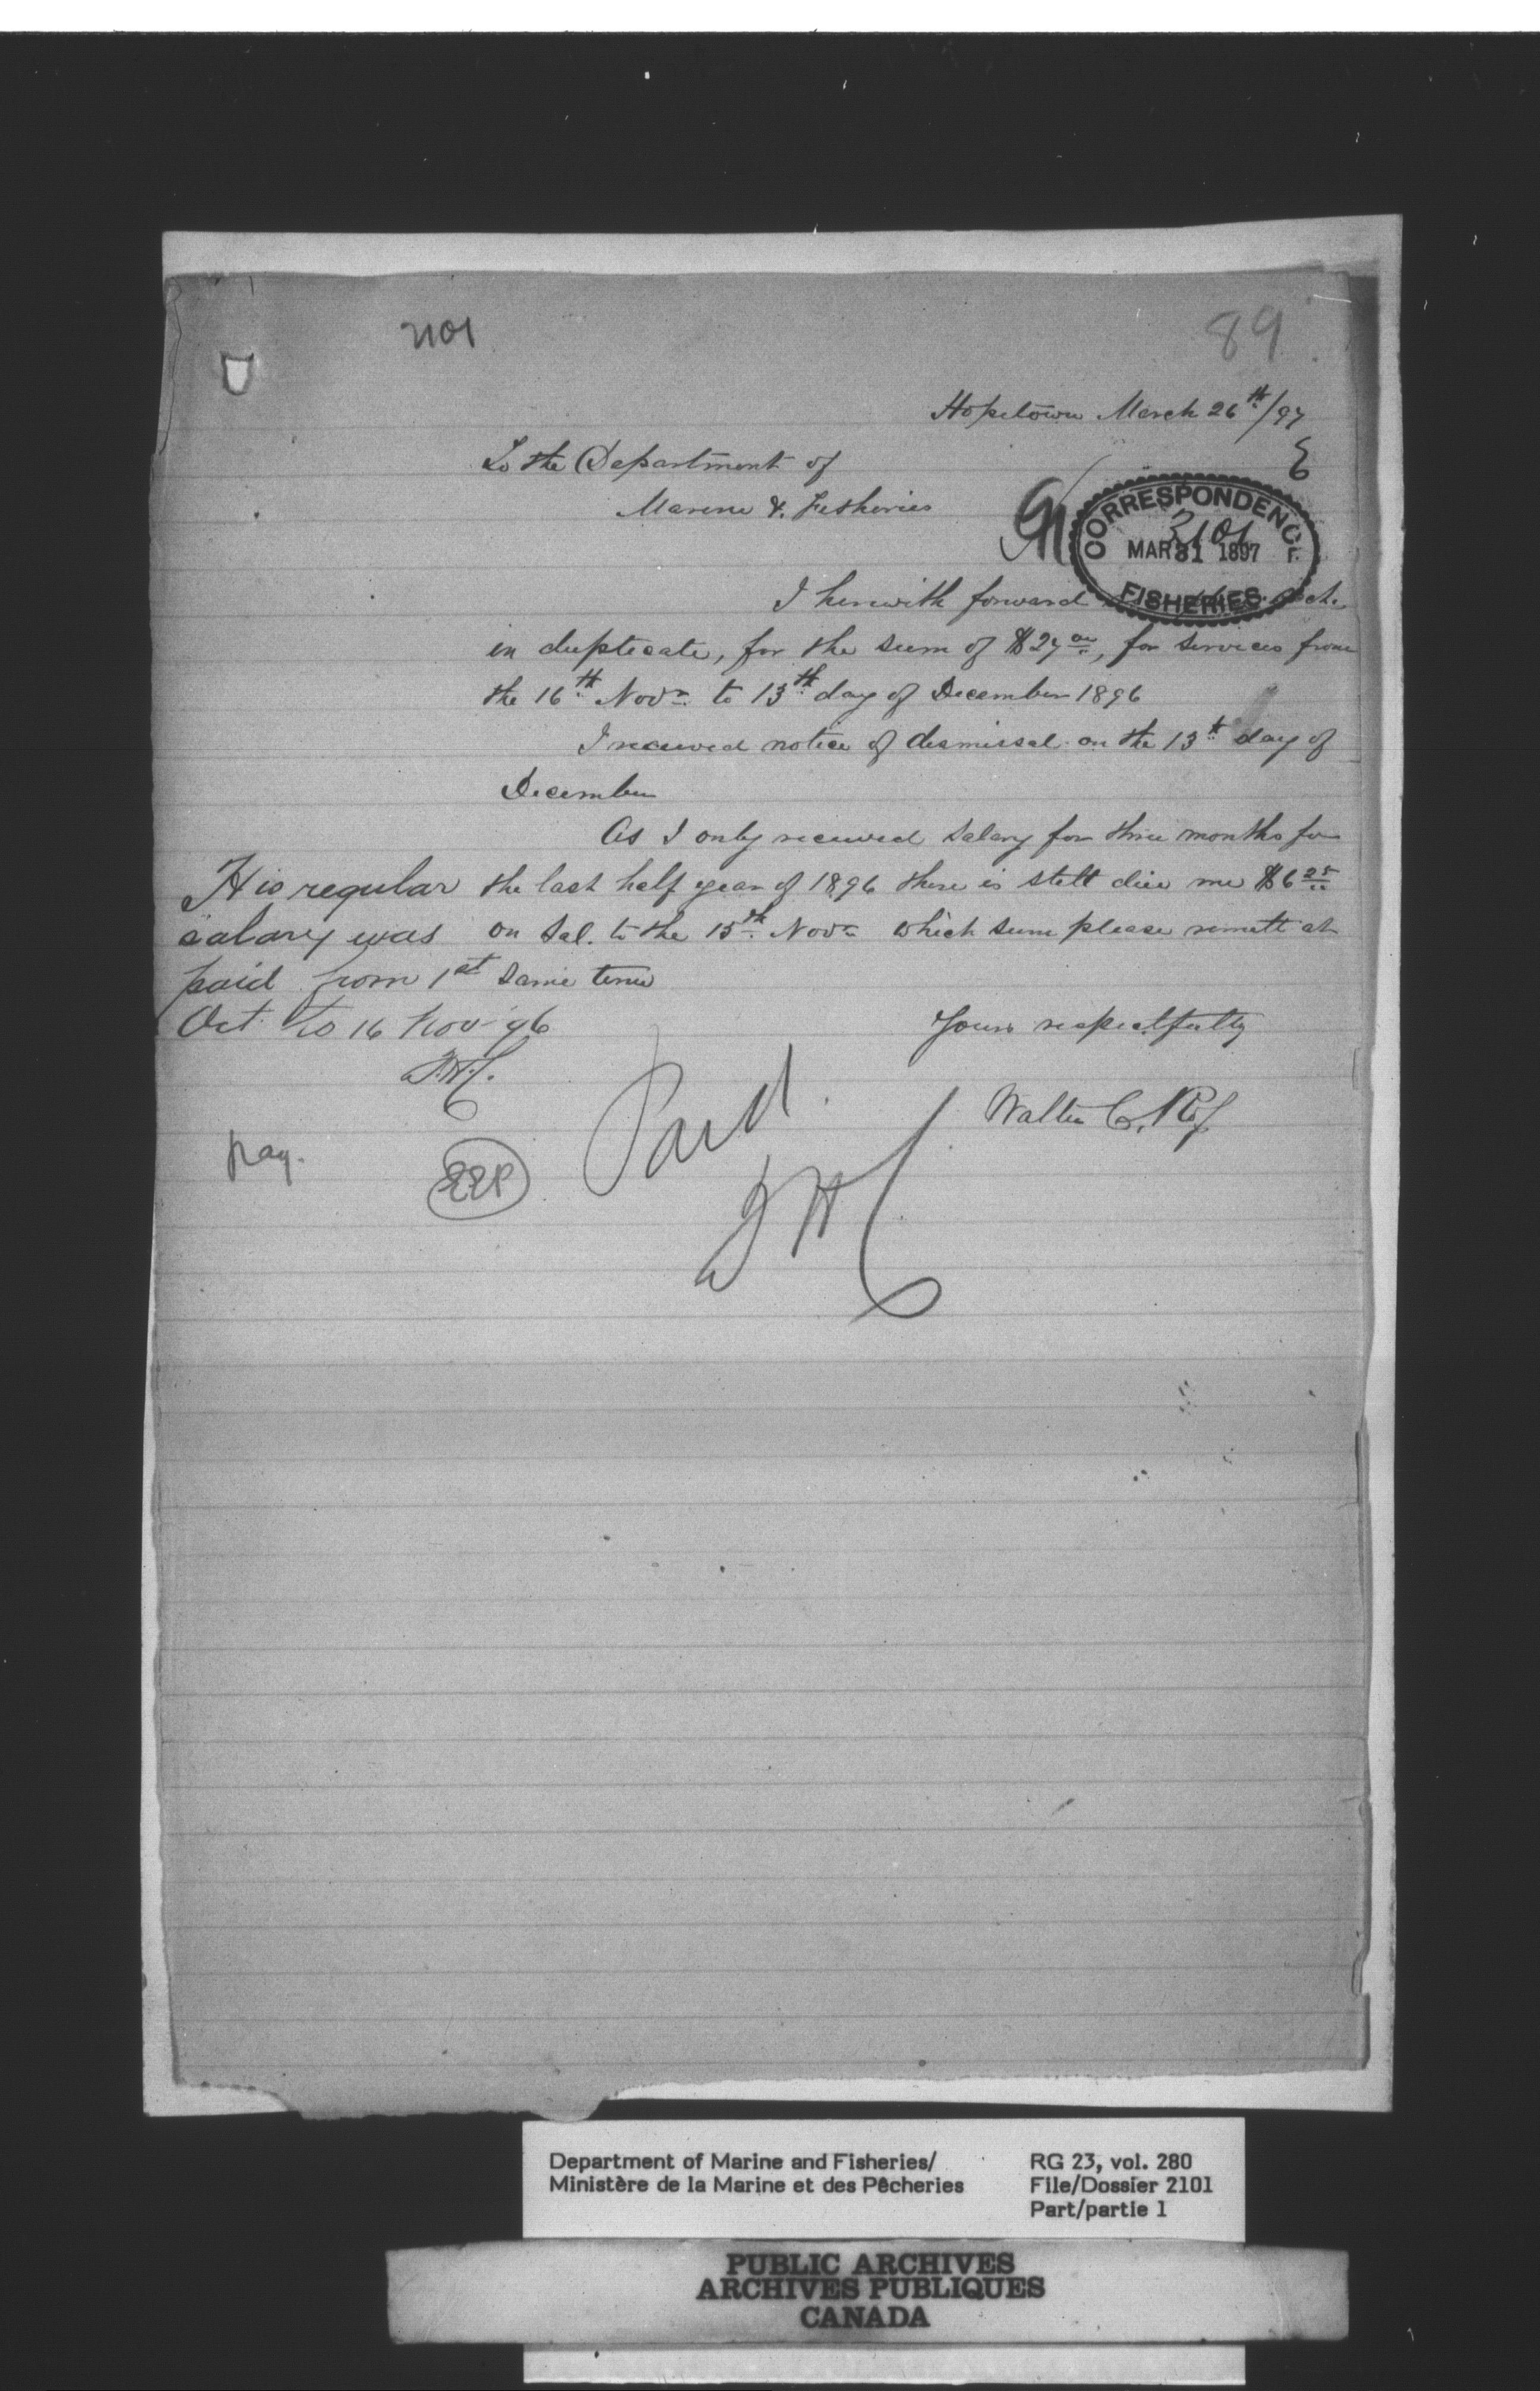 2101
89
Hopetown March 26th/97
To the Department of
Marine & Fisheries
CORRESPONDENCE
2101
MAR 31 1897
FISHERIES
I herewith forward
in duplicate, for the sum of $27 00, for services from
the 16th Novr. to 13th day of December 1896
I received notice of dismissal on the 13th day of
December
As I only received salary for three months for
the last half year of 1896 there is still due me $6 25
on Sal. to the 15th Novr. which sum please remitt at
same time
Yours respectfully
Walter C.
His regular
salary was
paid from 1st
Oct. to 16 Nov 96
pay.
Paid
Department of Marine and Fisheries/
Ministère de la Marine et des Pêcheries
RG 23, vol. 280
File/Dossier 2101
Part/partie 1
PUBLIC ARCHIVES
ARCHIVES PUBLIQUES
CANADA